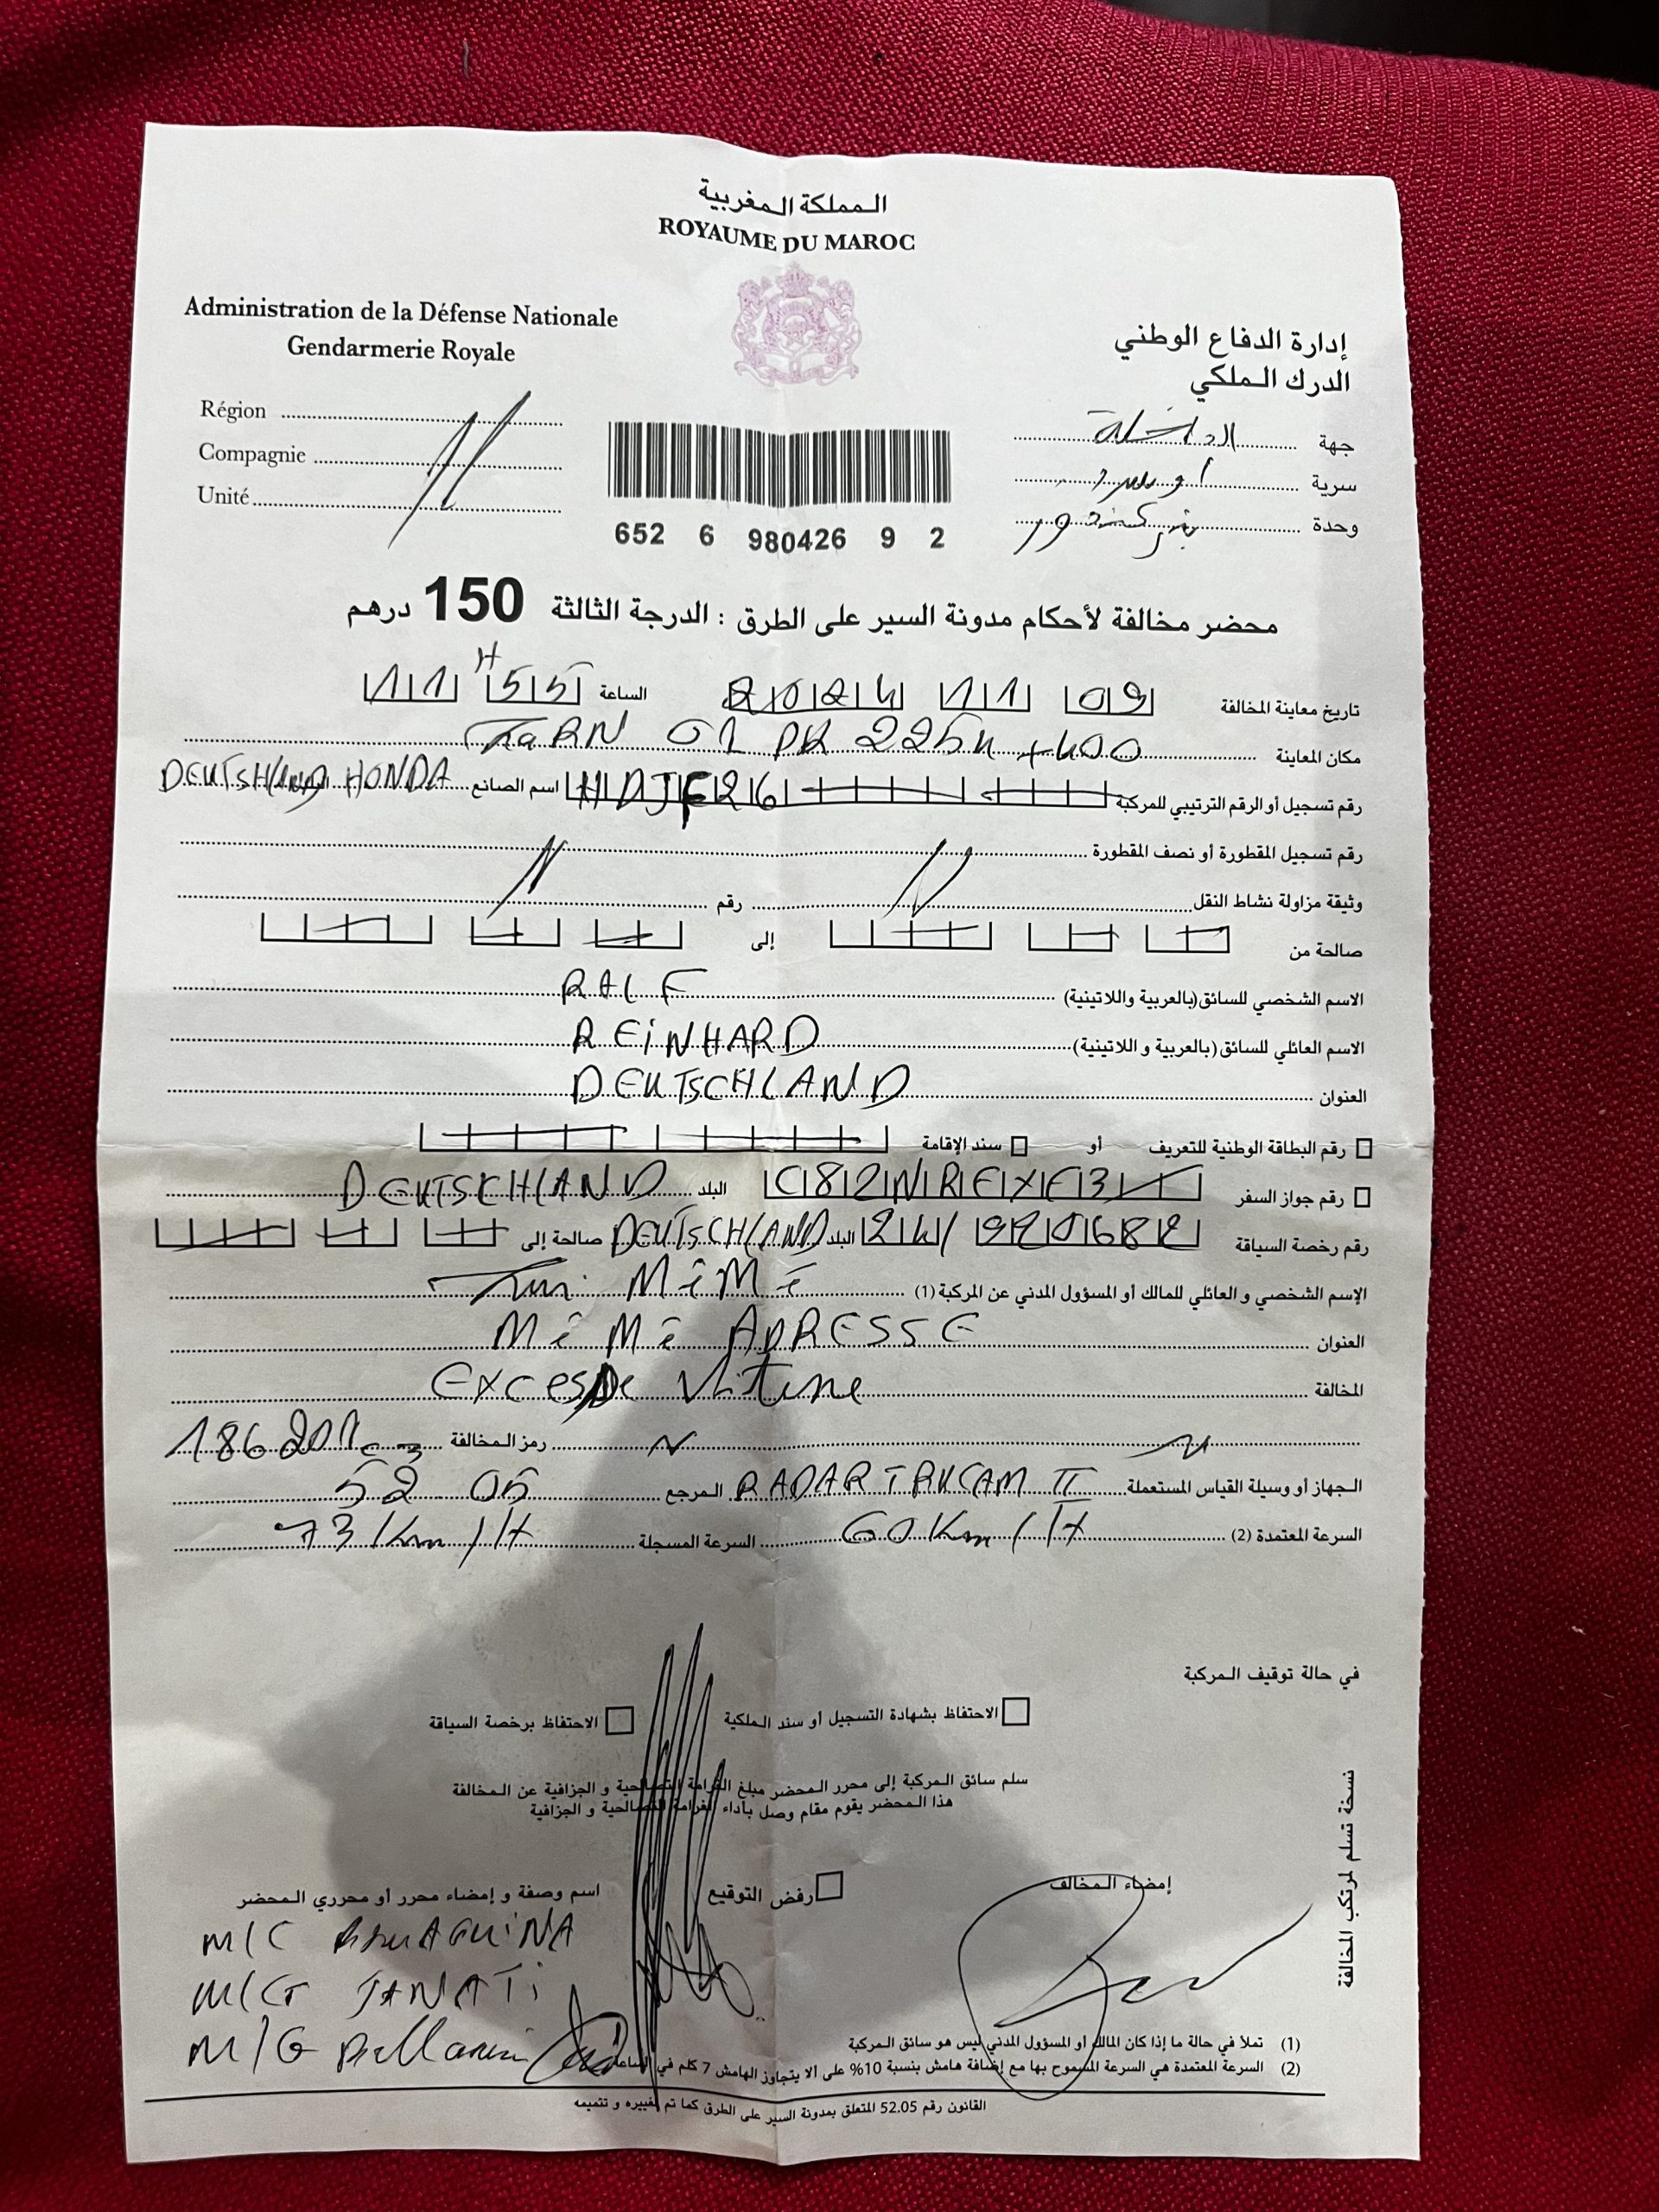 المملكة المغربية
ROYAUME DU MAROC
Administration de la Défense Nationale
Gendarmerie Royale
إدارة الدفاع الوطني
الدرك الملكي
Région
Compagnie
Unité
جهة الداخلة
سرية أوسرد
وحدة بئر كندوز
652 6 980426 9 2
محضر مخالفة لأحكام مدونة السير على الطرق : الدرجة الثالثة 150 درهم
تاريخ معاينة المخالفة 09 11 2024 الساعة 11 H 55
مكان المعاينة RN 01 PK 225 +400
رقم تسجيل أو الرقم الترتيبي للمركبة HDJF26 اسم الصانع DEUTSHLAND HONDA
رقم تسجيل المقطورة أو نصف المقطورة
وثيقة مزاولة نشاط النقل رقم
صالحة من إلى
الاسم الشخصي للسائق (بالعربية واللاتينية) RALF
الاسم العائلي للسائق (بالعربية و اللاتينية) REINHARD
العنوان DEUTSCHLAND
رقم البطاقة الوطنية للتعريف أو سند الإقامة
رقم جواز السفر C82NRFXF3 البلد DEUTSCHLAND
رقم رخصة السياقة البلد DEUTSCHLAND صالحة إلى
الإسم الشخصي و العائلي للمالك أو المسؤول المدني عن المركبة (1) MêMê
العنوان MêMê ADRESSE
المخالفة Exces De Vitesse
رمز المخالفة
الجهاز أو وسيلة القياس المستعملة RADAR TRUCAM II المرجع 52 05
السرعة المعتمدة (2) 60 Km/H السرعة المسجلة 73 Km/H
في حالة توقيف المركبة
الاحتفاظ بشهادة التسجيل أو سند الملكية الاحتفاظ برخصة السياقة
سلم سائق المركبة إلى محرر المحضر مبلغ الغرامة التصالحية و الجزافية عن المخالفة
هذا المحضر يقوم مقام وصل بأداء الغرامة التصالحية و الجزافية
نسخة تسلم لمرتكب المخالفة
إمضاء المخالف رفض التوقيع اسم وصفة و إمضاء محرر أو محرري المحضر
M/C
M/G JANATI
M/G
(1) تملأ في حالة ما إذا كان المالك أو المسؤول المدني ليس هو سائق المركبة
(2) السرعة المعتمدة هي السرعة المسموح بها مع إضافة هامش بنسبة 10% على ألا يتجاوز الهامش 7 كلم في الساعة
القانون رقم 52.05 المتعلق بمدونة السير على الطرق كما تم تغييره و تتميمه